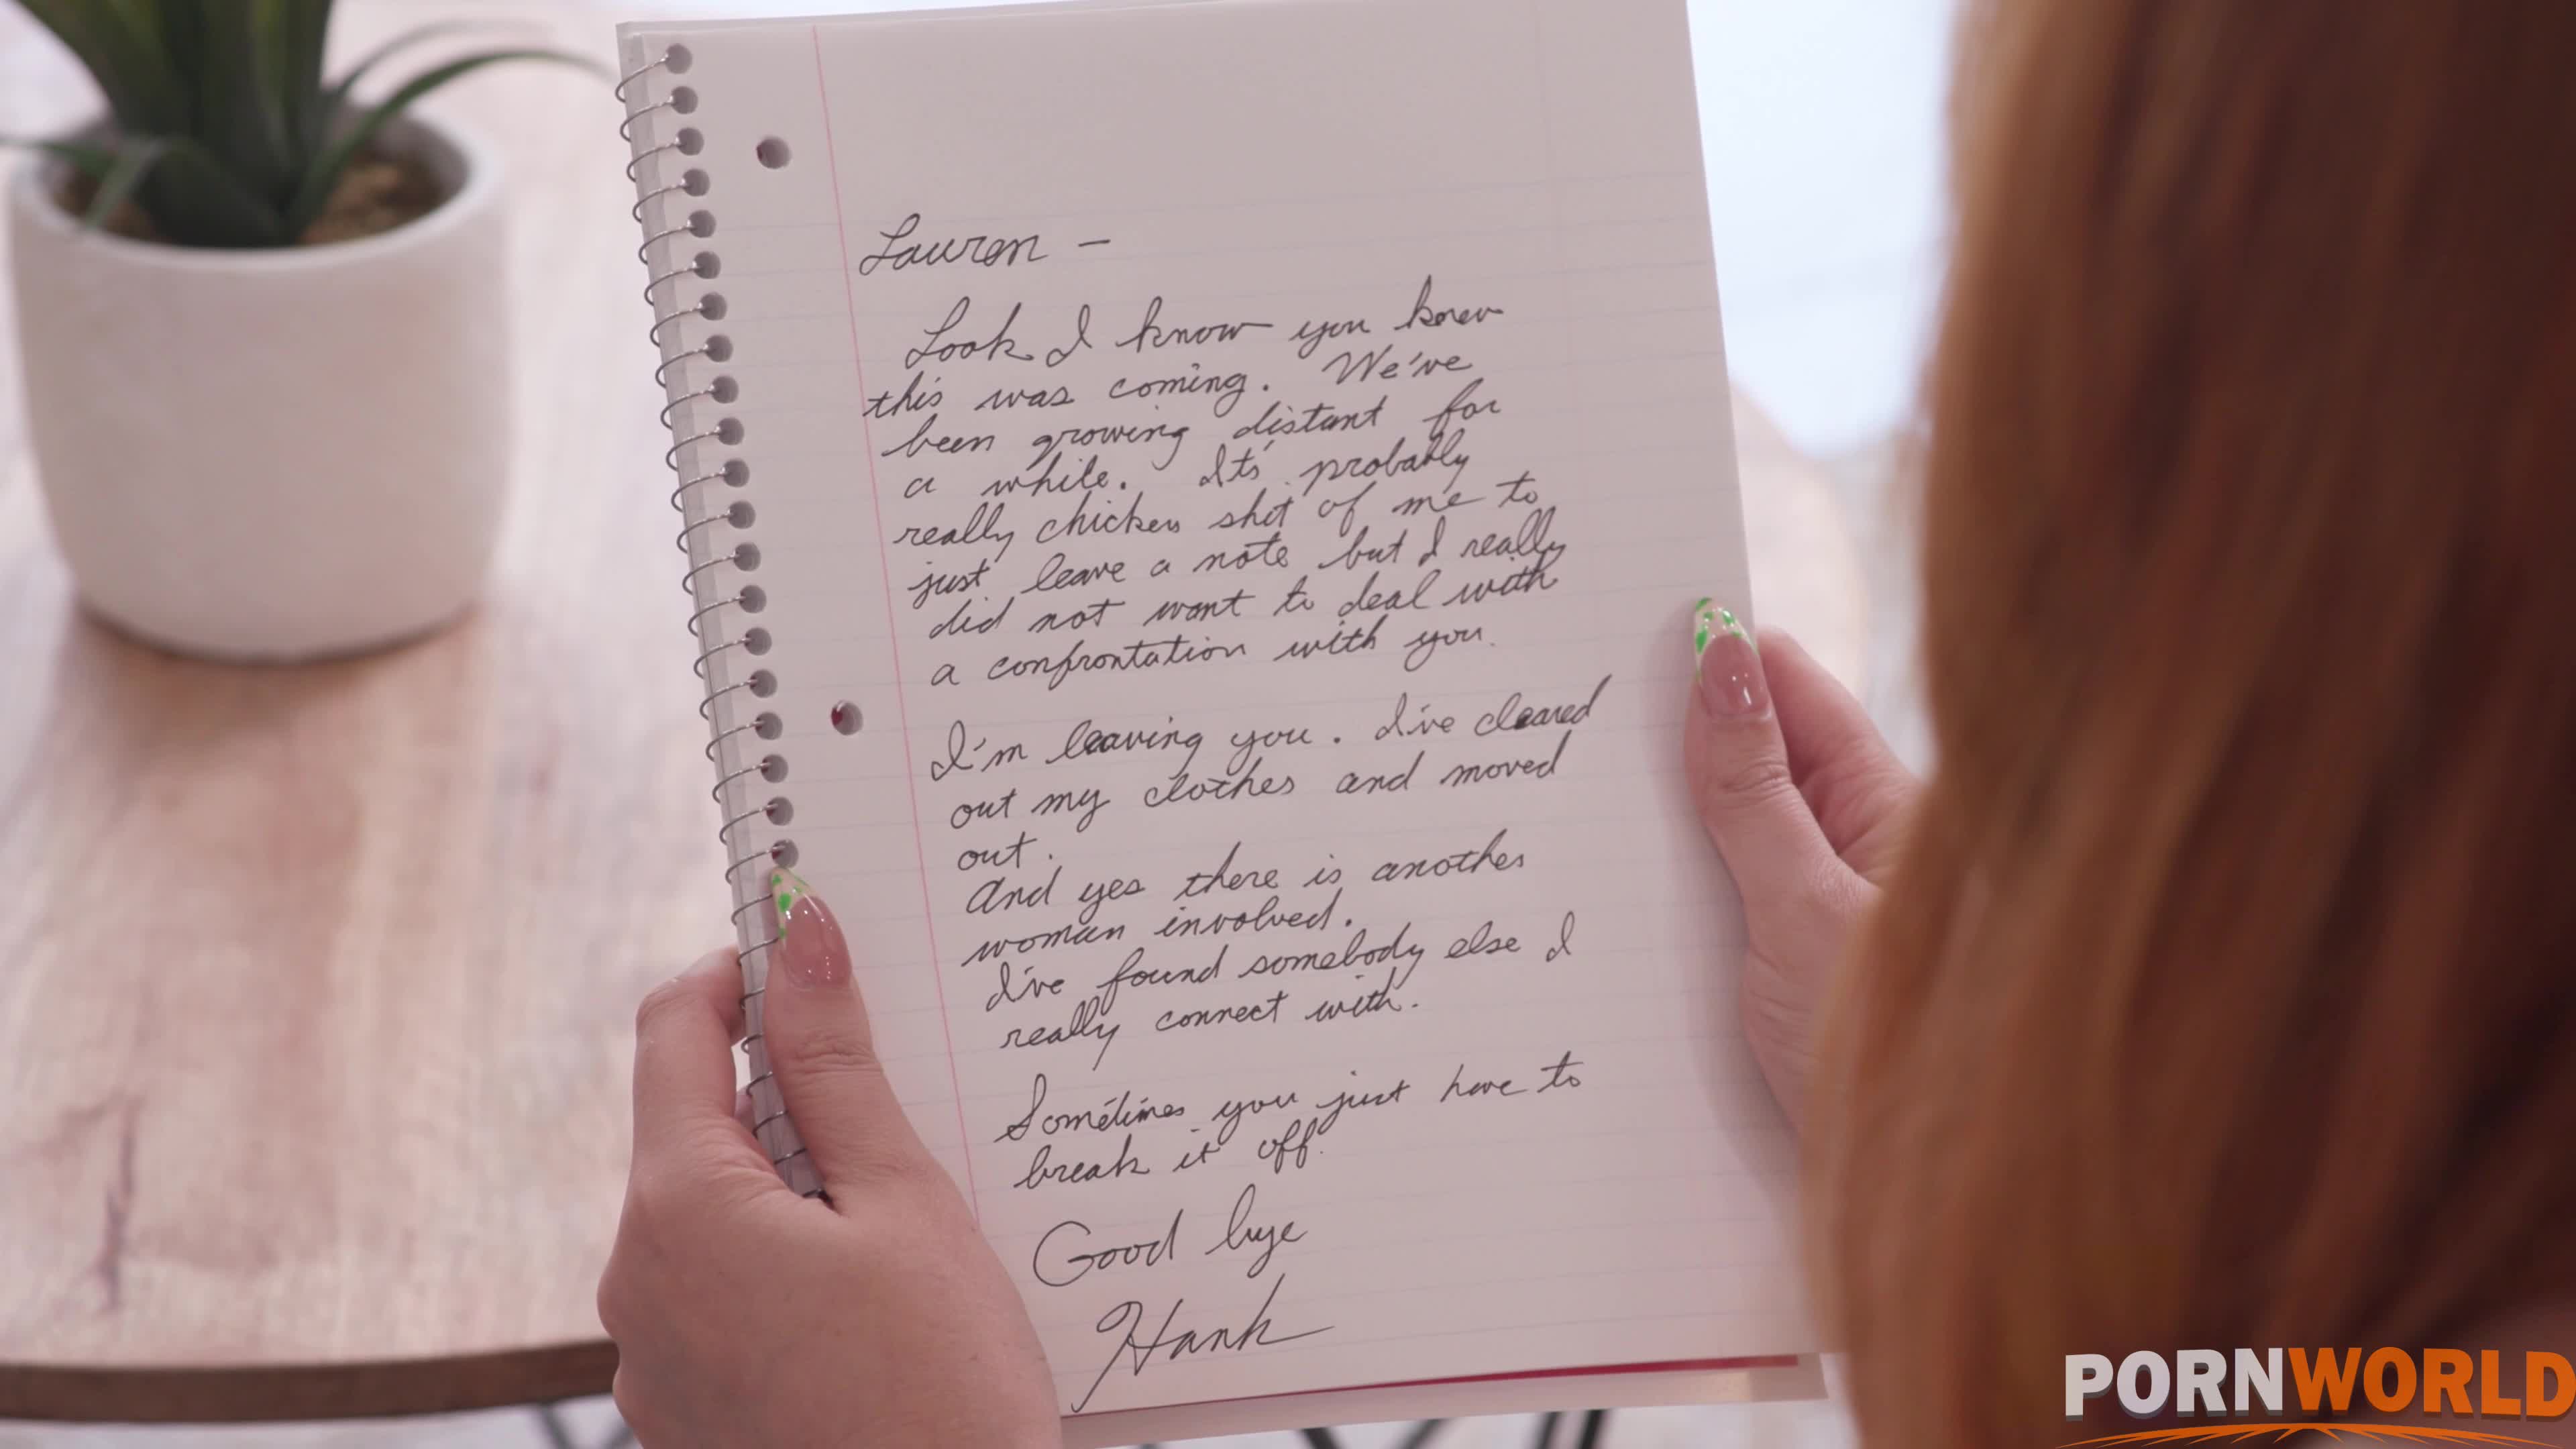 Lauren –
Look I know you knew
this was coming. We've
been growing distant for
a while. It's probably
really chicken shit of me to
just leave a note but I really
did not want to deal with
a confrontation with you.
I'm leaving you. I've cleared
out my clothes and moved
out.
And yes there is another
woman involved.
I've found somebody else I
really connect with.
Sometimes you just have to
break it off.
Good bye
Hank
PORNWORLD